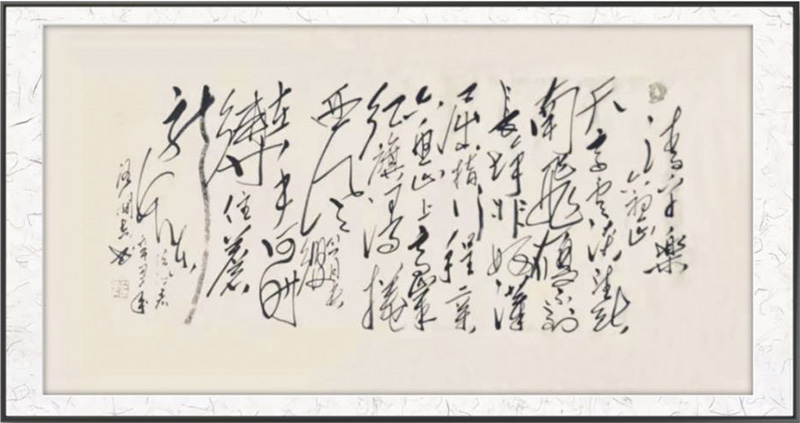 清平樂
六盘山
天高雲淡望斷
南飛雁不到
長城非好漢
屈指行程二萬
六盘山上高峰
紅旗漫捲
西風今日長
纓
在手何时
縛住蒼
龍